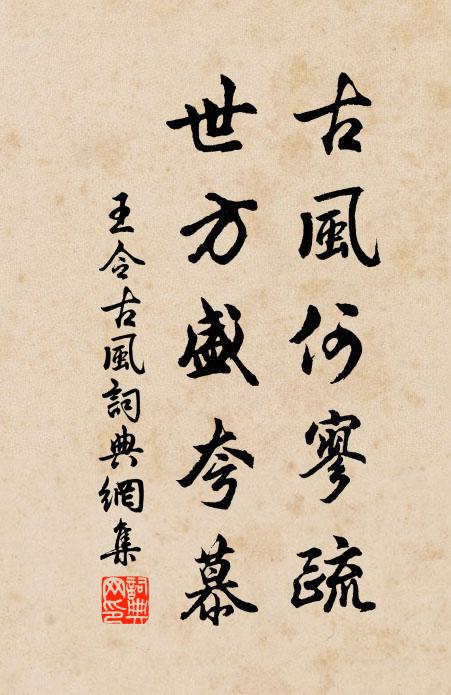 古風何寥疏
世方盛夸慕
王令古風詞典網集
詞典網印